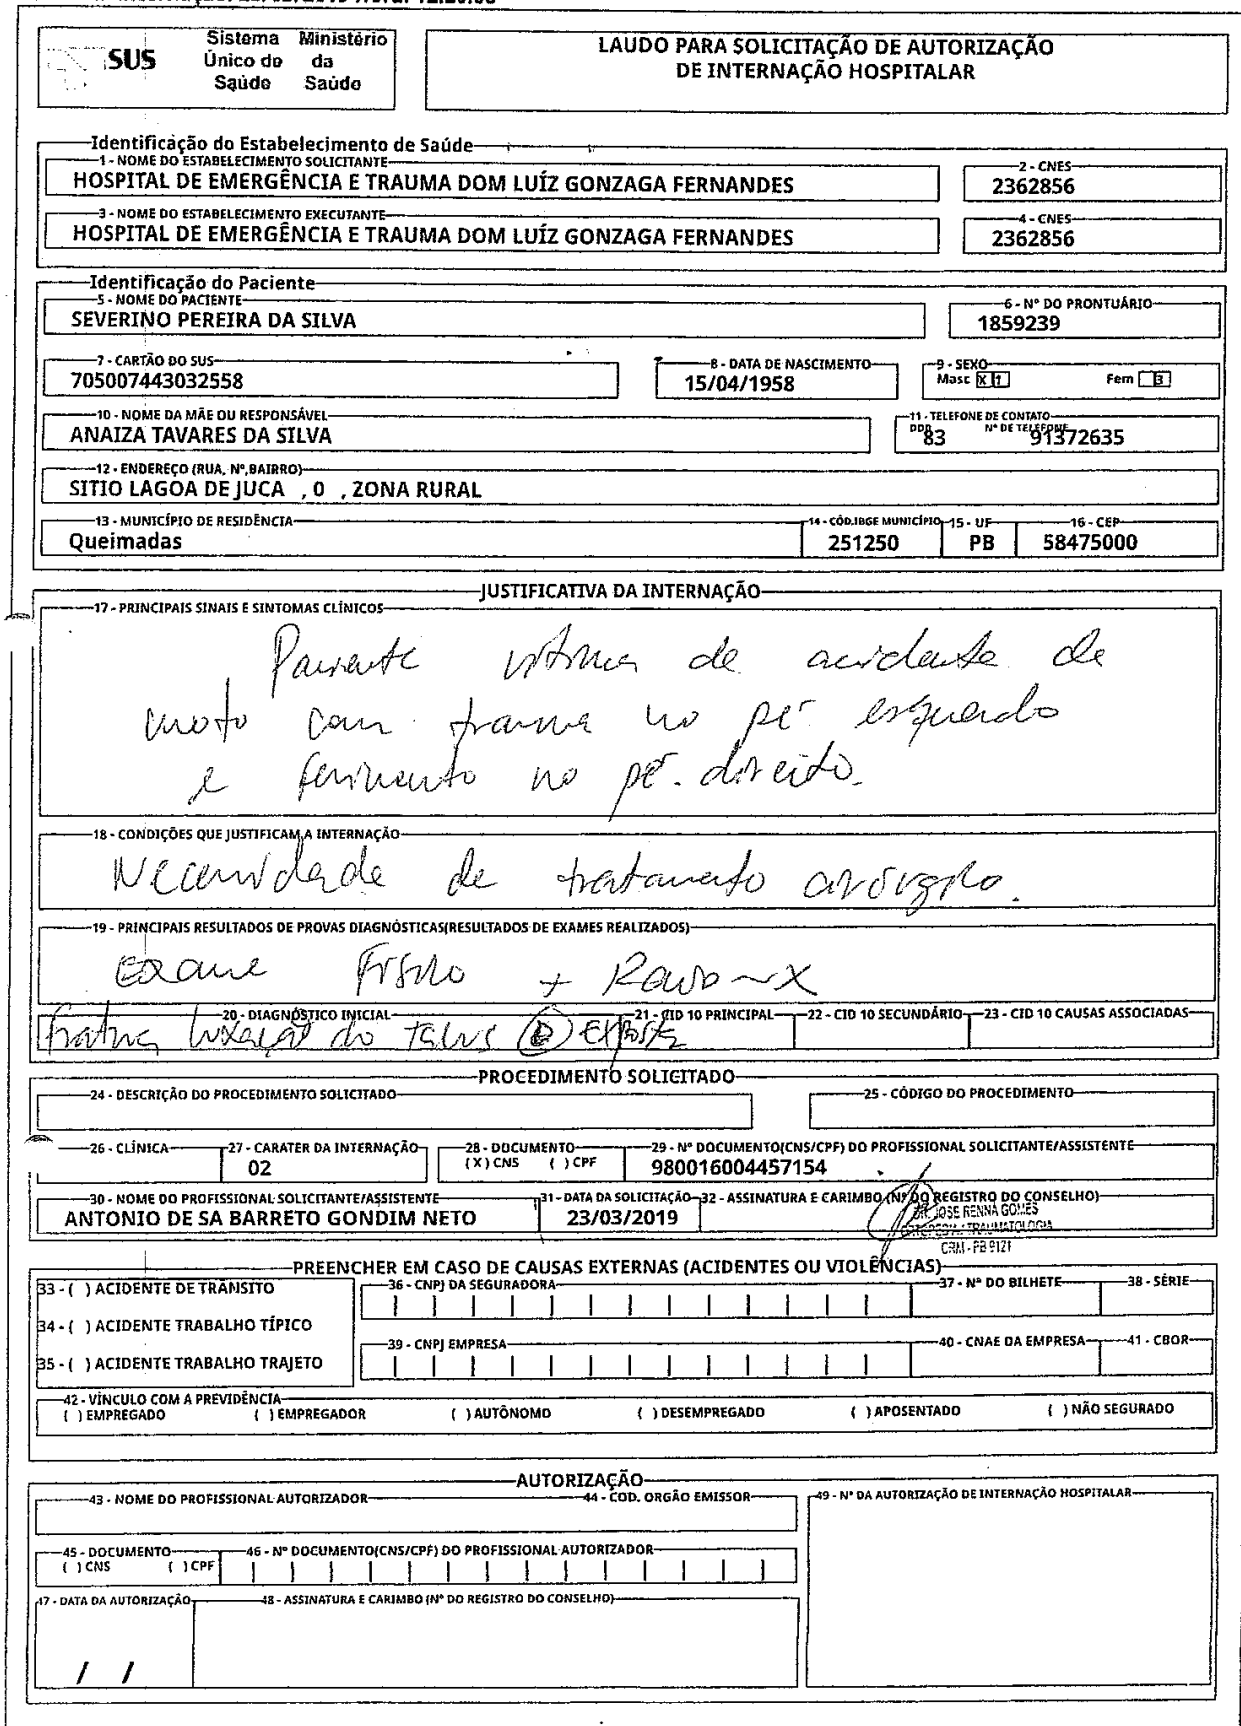 SUS
Sistema Único de Saúde
Ministério da Saúde
LAUDO PARA SOLICITAÇÃO DE AUTORIZAÇÃO
DE INTERNAÇÃO HOSPITALAR
Identificação do Estabelecimento de Saúde
1 - NOME DO ESTABELECIMENTO SOLICITANTE
HOSPITAL DE EMERGÊNCIA E TRAUMA DOM LUÍZ GONZAGA FERNANDES
2 - CNES
2362856
3 - NOME DO ESTABELECIMENTO EXECUTANTE
HOSPITAL DE EMERGÊNCIA E TRAUMA DOM LUÍZ GONZAGA FERNANDES
4 - CNES
2362856
Identificação do Paciente
5 - NOME DO PACIENTE
SEVERINO PEREIRA DA SILVA
6 - Nº DO PRONTUÁRIO
1859239
7 - CARTÃO DO SUS
705007443032558
8 - DATA DE NASCIMENTO
15/04/1958
9 - SEXO
Masc X 1 Fem 3
10 - NOME DA MÃE OU RESPONSÁVEL
ANAIZA TAVARES DA SILVA
11 - TELEFONE DE CONTATO
DDD Nº DE TELEFONE
83 91372635
12 - ENDEREÇO (RUA, Nº,BAIRRO)
SITIO LAGOA DE JUCA , 0 , ZONA RURAL
13 - MUNICÍPIO DE RESIDÊNCIA
Queimadas
14 - CÓD.IBGE MUNICÍPIO
251250
15 - UF
PB
16 - CEP
58475000
JUSTIFICATIVA DA INTERNAÇÃO
17 - PRINCIPAIS SINAIS E SINTOMAS CLÍNICOS
Paciente vítima de acidente de
moto com trauma no pé esquerdo
e ferimento no pé direito.
18 - CONDIÇÕES QUE JUSTIFICAM A INTERNAÇÃO
Necessidade de tratamento cirúrgico.
19 - PRINCIPAIS RESULTADOS DE PROVAS DIAGNÓSTICAS(RESULTADOS DE EXAMES REALIZADOS)
Exame Físico + Raio-X
20 - DIAGNÓSTICO INICIAL
fratura luxação do talus exposta
21 - CID 10 PRINCIPAL
22 - CID 10 SECUNDÁRIO
23 - CID 10 CAUSAS ASSOCIADAS
PROCEDIMENTO SOLICITADO
24 - DESCRIÇÃO DO PROCEDIMENTO SOLICITADO
25 - CÓDIGO DO PROCEDIMENTO
26 - CLÍNICA
27 - CARATER DA INTERNAÇÃO
02
28 - DOCUMENTO
(X) CNS ( ) CPF
29 - Nº DOCUMENTO(CNS/CPF) DO PROFISSIONAL SOLICITANTE/ASSISTENTE
980016004457154
30 - NOME DO PROFISSIONAL SOLICITANTE/ASSISTENTE
ANTONIO DE SA BARRETO GONDIM NETO
31 - DATA DA SOLICITAÇÃO
23/03/2019
32 - ASSINATURA E CARIMBO (Nº DO REGISTRO DO CONSELHO)
DR. JOSE RENNA GOMES
ORTOPEDIA / TRAUMATOLOGIA
CRM - PB 9121
PREENCHER EM CASO DE CAUSAS EXTERNAS (ACIDENTES OU VIOLÊNCIAS)
33 - ( ) ACIDENTE DE TRÂNSITO
34 - ( ) ACIDENTE TRABALHO TÍPICO
35 - ( ) ACIDENTE TRABALHO TRAJETO
36 - CNPJ DA SEGURADORA
37 - Nº DO BILHETE
38 - SÉRIE
39 - CNPJ EMPRESA
40 - CNAE DA EMPRESA
41 - CBOR
42 - VÍNCULO COM A PREVIDÊNCIA
( ) EMPREGADO ( ) EMPREGADOR ( ) AUTÔNOMO ( ) DESEMPREGADO ( ) APOSENTADO ( ) NÃO SEGURADO
AUTORIZAÇÃO
43 - NOME DO PROFISSIONAL AUTORIZADOR
44 - COD. ORGÃO EMISSOR
49 - Nº DA AUTORIZAÇÃO DE INTERNAÇÃO HOSPITALAR
45 - DOCUMENTO
( ) CNS ( ) CPF
46 - Nº DOCUMENTO(CNS/CPF) DO PROFISSIONAL AUTORIZADOR
47 - DATA DA AUTORIZAÇÃO
/ /
48 - ASSINATURA E CARIMBO (Nº DO REGISTRO DO CONSELHO)